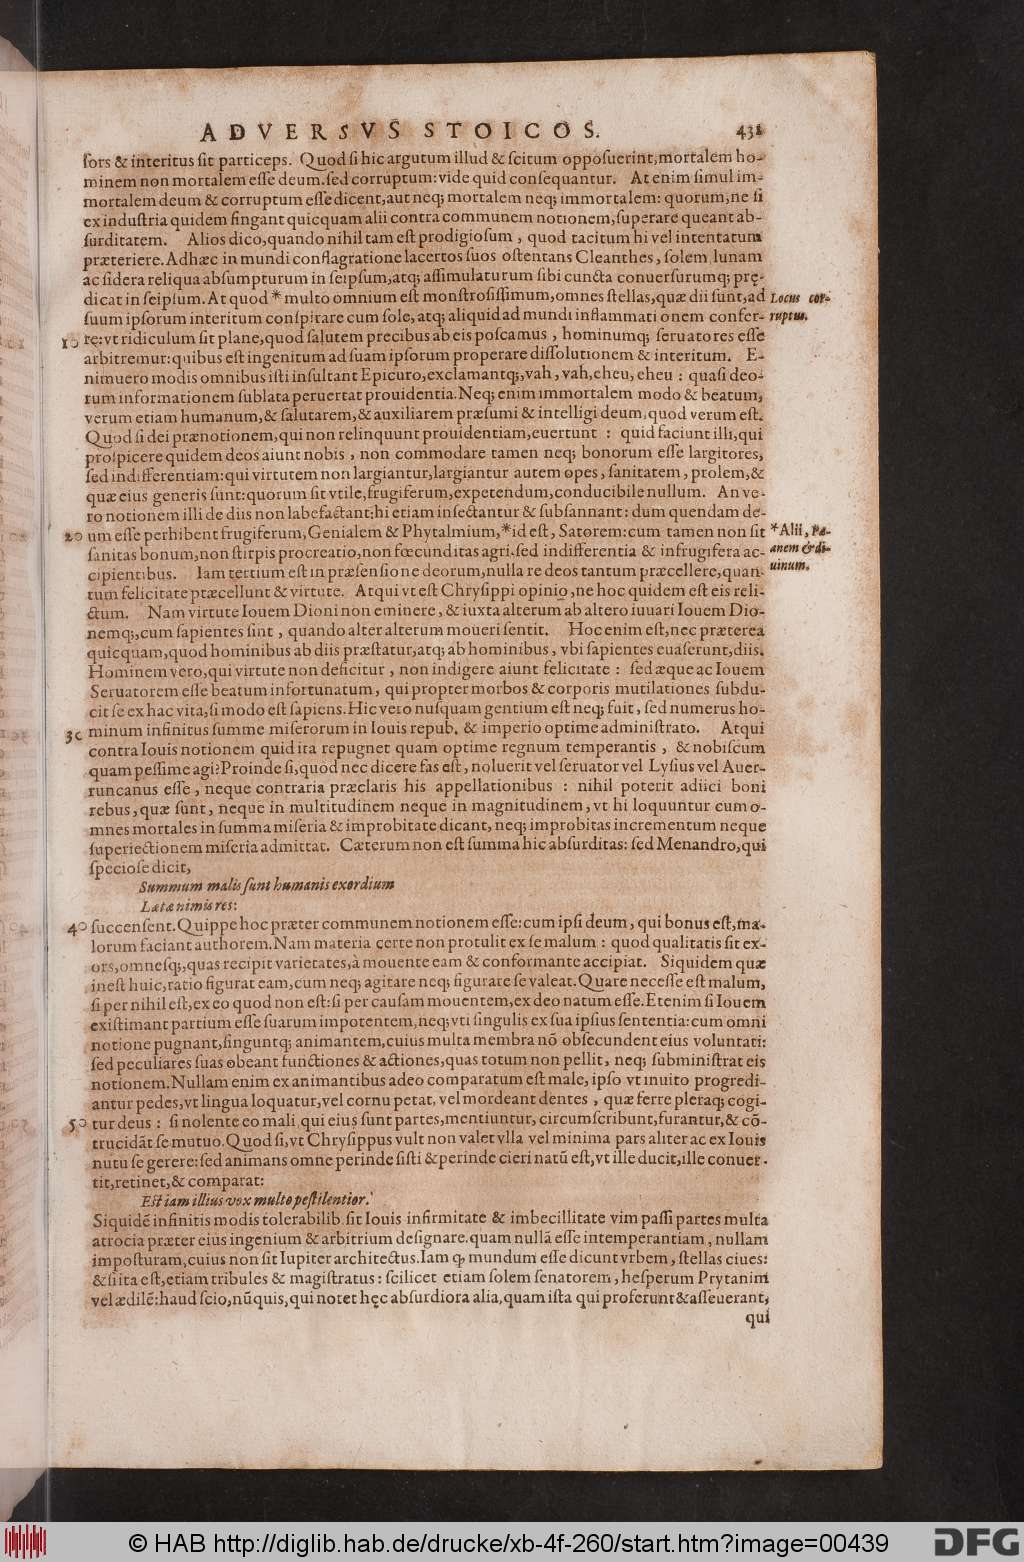 ADVERSVS STOICOS. 431
ſors & interitus ſit particeps. Quod ſi hic argutum illud & ſcitum oppoſuerint, mortalem ho-
minem non mortalem eſſe deum. ſed corruptum: vide quid conſequantur. At enim ſimul im-
mortalem deum & corruptum eſſe dicent, aut neq; mortalem neq; immortalem: quorum, ne ſi
ex induſtria quidem fingant quicquam alii contra communem notionem, ſuperare queant ab-
ſurditatem. Alios dico, quando nihil tam eſt prodigioſum, quod tacitum hi vel intentatum
præteriere. Adhæc in mundi conflagratione lacertos ſuos oſtentans Cleanthes, ſolem, lunam
ac ſidera reliqua abſumpturum in ſeipſum, atq; aſſimulaturum ſibi cuncta conuerſurumq; prę-
dicat in ſeipſum. At quod * multo omnium eſt monſtroſiſſimum, omnes ſtellas, quæ dii ſunt, ad
Locus cor-
ſuum ipſorum interitum conſpirare cum ſole, atq; aliquid ad mundi inflammationem confer-
ruptus.
10 rę: vt ridiculum ſit plane, quod ſalutem precibus ab eis poſcamus, hominumq; ſeruatores eſſe
arbitremur: quibus eſt ingenitum ad ſuam ipſorum properare diſſolutionem & interitum. E-
nimuero modis omnibus iſti inſultant Epicuro, exclamantq;, vah, vah, eheu, eheu: quaſi deo-
rum informationem ſublata peruertat prouidentia. Neq; enim immortalem modo & beatum,
verum etiam humanum, & ſalutarem, & auxiliarem præſumi & intelligi deum, quod verum eſt.
Quod ſi dei prænotionem, qui non relinquunt prouidentiam, euertunt: quid faciunt illi, qui
proſpicere quidem deos aiunt nobis, non commodare tamen neq; bonorum eſſe largitores,
ſed indifferentiam: qui virtutem non largiantur, largiantur autem opes, ſanitatem, prolem, &
quæ eius generis ſunt: quorum ſit vtile, frugiferum, expetendum, conducibile nullum. An ve-
ro notionem illi de diis non labefactant; hi etiam inſectantur & ſubſannant: dum quendam de-
20 um eſſe perhibent frugiferum, Genialem & Phytalmium, * id eſt, Satorem: cum tamen non ſit
*Alii, Pæ-
ſanitas bonum, non ſtirpis procreatio, non fœcunditas agri. ſed indifferentia & infrugifera ac-
anem & di-
cipientibus. Iam tertium eſt in præſenſione deorum, nulla re deos tantum præcellere, quan-
uinum.
tum felicitate præcellunt & virtute. Atqui vt eſt Chryſippi opinio, ne hoc quidem eſt eis reli-
ctum. Nam virtute Iouem Dioni non eminere, & iuxta alterum ab altero iuuari Iouem Dio-
nemq;, cum ſapientes ſint, quando alter alterum moueri ſentit. Hoc enim eſt, nec præterea
quicquam, quod hominibus ab diis præſtatur, atq; ab hominibus, vbi ſapientes euaſerunt, diis.
Hominem vero, qui virtute non deficitur, non indigere aiunt felicitate: ſed æque ac Iouem
Seruatorem eſſe beatum infortunatum, qui propter morbos & corporis mutilationes ſubdu-
cit ſe ex hac vita, ſi modo eſt ſapiens. Hic vero nuſquam gentium eſt neq; fuit, ſed numerus ho-
30 minum infinitus ſumme miſerorum in Iouis repub. & imperio optime adminiſtrato. Atqui
contra Iouis notionem quid ita repugnet quam optime regnum temperantis, & nobiſcum
quam peſſime agi? Proinde ſi, quod nec dicere fas eſt, noluerit vel ſeruator vel Lyſius vel Auer-
runcanus eſſe, neque contraria præclaris his appellationibus: nihil poterit adiici boni
rebus, quæ ſunt, neque in multitudinem neque in magnitudinem, vt hi loquuntur cum o-
mnes mortales in ſumma miſeria & improbitate dicant, neq; improbitas incrementum neque
ſuperiectionem miſeria admittat. Cæterum non eſt ſumma hic abſurditas: ſed Menandro, qui
ſpecioſe dicit,
Summum malis ſunt humanis exordium
Lætæ nimis res:
40 ſuccenſent. Quippe hoc præter communem notionem eſſe: cum ipſi deum, qui bonus eſt, ma-
lorum faciant authorem. Nam materia certe non protulit ex ſe malum: quod qualitatis ſit ex-
ors, omneſq;, quas recipit varietates, à mouente eam & conformante accipiat. Siquidem quæ
ineſt huic, ratio figurat eam, cum neq; agitare neq; figurare ſe valeat. Quare neceſſe eſt malum,
ſi per nihil eſt, ex eo quod non eſt: ſi per cauſam mouentem, ex deo natum eſſe. Etenim ſi Iouem
exiſtimant partium eſſe ſuarum impotentem, neq; vti ſingulis ex ſua ipſius ſententia: cum omni
notione pugnant, finguntq; animantem, cuius multa membra nõ obſecundent eius voluntati:
ſed peculiares ſuas obeant functiones & actiones, quas totum non pellit, neq; ſubminiſtrat eis
notionem. Nullam enim ex animantibus adeo comparatum eſt male, ipſo vt inuito progredi-
antur pedes, vt lingua loquatur, vel cornu petat, vel mordeant dentes, quæ ferre pleraq; cogi-
50 tur deus: ſi nolente eo mali, qui eius ſunt partes, mentiuntur, circumſcribunt, furantur, & cõ-
trucidãt ſe mutuo. Quod ſi, vt Chryſippus vult non valet vlla vel minima pars aliter ac ex Iouis
nutu ſe gerere: ſed animans omne perinde ſiſti & perinde cieri natũ eſt, vt ille ducit, ille conuer-
tit, retinet, & comparat:
Eſt iam illius vox multo peſtilentior.
Siquidẽ infinitis modis tolerabilib. ſit Iouis infirmitate & imbecillitate vim paſſi partes multa
atrocia præter eius ingenium & arbitrium deſignare. quam nullã eſſe intemperantiam, nullam
impoſturam, cuius non ſit Iupiter architectus. Iam q; mundum eſſe dicunt vrbem, ſtellas ciues:
& ſi ita eſt, etiam tribules & magiſtratus: ſcilicet etiam ſolem ſenatorem, heſperum Prytanim
vel ædilẽ: haud ſcio, nũquis, qui notet hęc abſurdiora alia, quam iſta qui proferunt & aſſeuerant,
qui
© HAB http://diglib.hab.de/drucke/xb-4f-260/start.htm?image=00439
DFG